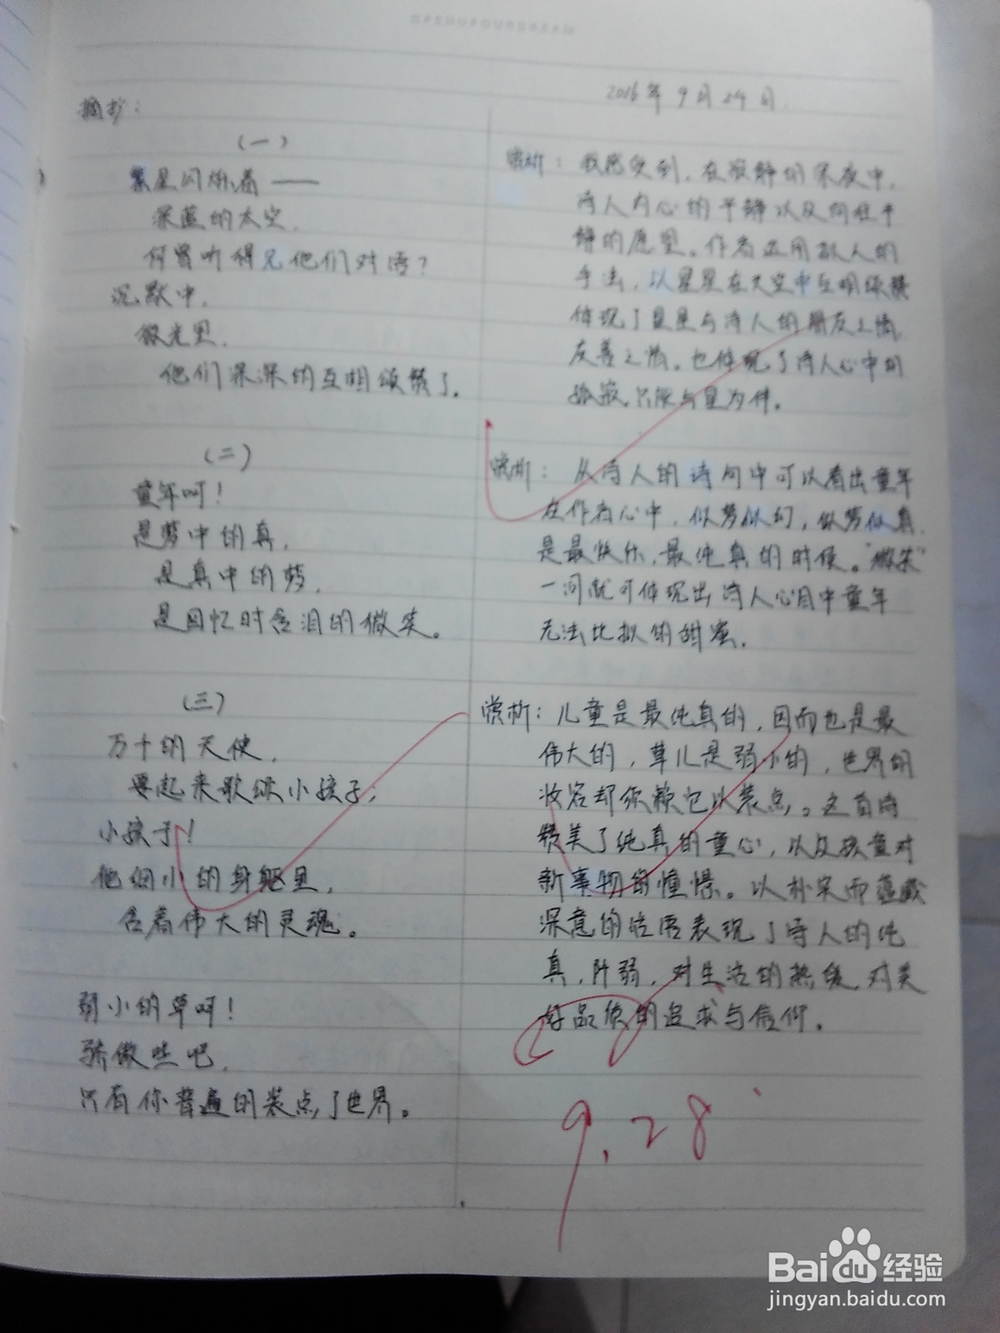 2016年9月24日
摘抄：
（一）
繁星闪烁着——
深蓝的太空，
何曾听得见他们对语？
沉默中，
微光里，
他们深深的互相颂赞了。
（二）
童年呵！
是梦中的真，
是真中的梦，
是回忆时含泪的微笑。
（三）
万千的天使，
要起来歌颂小孩子；
小孩子！
他细小的身躯里，
含着伟大的灵魂。
弱小的草呵！
骄傲些吧，
只有你普遍的装点了世界。
赏析：我感受到，在寂静的深夜中，
诗人内心的平静以及向往平
静的愿望。作者运用拟人的
手法，以星星在天空中互相颂赞
体现了星星与诗人的朋友之情，
友善之情。也体现了诗人心中的
孤寂，只能与星为伴。
赏析：从诗人的诗句中可以看出童年
在作者心中，似梦似幻，似梦似真，
是最快乐，最纯真的时候。“微笑”
一词就可体现出诗人心目中童年
无法比拟的甜蜜。
赏析：儿童是最纯真的，因而也是最
伟大的，草儿是弱小的，世界的
妆容却依赖它以装点。这首诗
赞美了纯真的童心，以及孩童对
新事物的憧憬。以朴实而蕴藏
深意的话语表现了诗人的纯
真， 对生活的热爱，对美
好品质的追求与信仰。
9.28
Baidu经验
jingyan.baidu.com